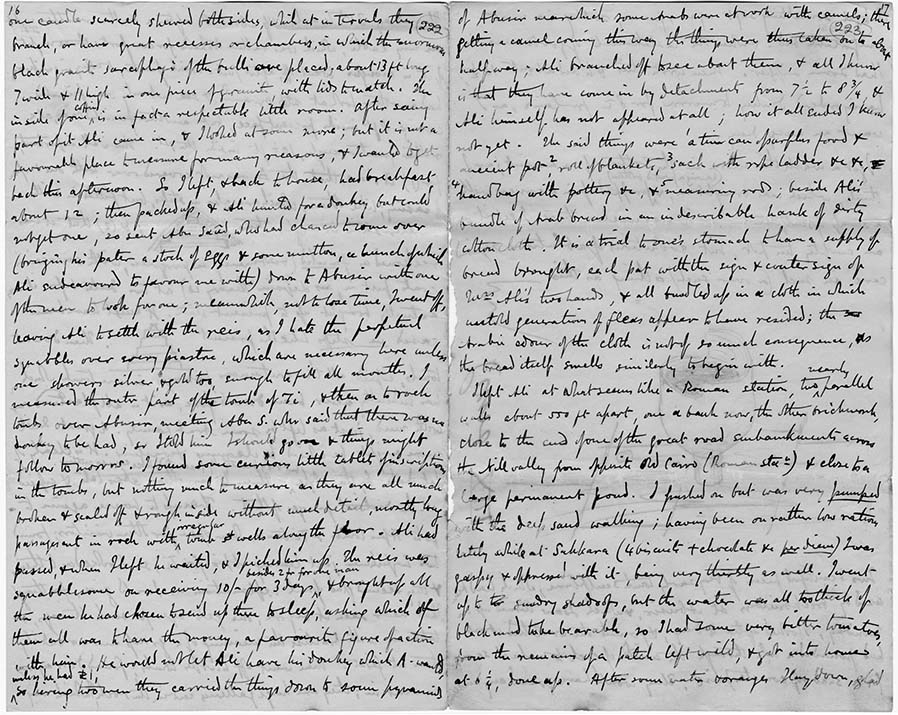 16
222
one candle scarcely shewed both sides, whil at intervals they
branch, or have great recesses or chambers, in which the enormous
black granite sarcophagi of the bulls are placed, about 13 ft long
7 wide & 11 high in one piece of granite with lids to match. The
inside of one coffin is in fact a respectable little room. After seeing
part of it Ali came in, & I looked at some more; but it is not a
favourable place to measure for many reasons, & I wanted to get
back this afternoon. So I left, & back to house, had breakfast
about 12; then packed up, & Ali hunted for a donkey but could
not get one, so sent Abu Saïd, who had chanced to come over
(bringing his pater a stock of eggs & some mutton, a hunch of which
Ali endeavoured to favour me with) down to Abusir with one
of the men to look for one; meanwhile, not to lose time, I went off,
leaving Ali to settle with the reis, as I hate the perpetual
squabbles over every piastre, which are necessary here unless
one showers silver & gold too, enough to fill all mouths. I
measured the outer part of the tomb of Ti, & then on to rock
tombs over Abusir, meeting Abu S. who said that there was no
donkey to be had, so I told him I should go on & things might
follow to morrow. I found some curious little tablets of inscription
in the tombs, but nothing much to measure as they are all much
broken & scaled off & rough inside without much detail, mostly long
passages cut in rock with irregular tomb wells along the floor. Ali had
passed, & when I left he waited, & I picked him up. The reis was
squabblesome on receiving 10/- for 3 days besides 2/- for the man & brought up all
the men he had chosen to send up there to sleep, asking which of
them all was to have the money, a favourite figure of action
with him. He would not let Ali have his donkey which A. wanted,
unless he had £1,
so having two men they carried the things down to some pyramids
17
223
of Abusir near which some Arabs were at work with camels; there
getting a camel coming this way the things were thus taken on to about
halfway; Ali branched off to see about them, & all I know
is that they have come in by detachments from 7½ to 8¾, &
Ali himself has not appeared at all; how it all ended I know
not yet. The said things were 1 a tin can of surplus food &
ancient pot 2, roll of blankets, 3 sack with rope ladder &c &c,
4 handbag with pottery &c, & 5 measuring rods; beside Ali's
bundle of Arab bread in an indescribable hank of dirty
cotton cloth. It is a trial to one's stomach to have a supply of
bread brought, each pat with the sign & counter sign of
Mrs Ali's two hands, & all bundled up in a cloth in which
untold generations of fleas appear to have resided; the
Arabic odour of the cloth is not of so much consequence, as
the bread itself smells similarly to begin with.
I left Ali at what seems like a Roman station, two nearly parallel
walls about 500 ft apart, one a bank now, the other brickwork,
close to the end of one of the great road embankments across
the Nile valley from opposite Old Cairo (Roman statn) & close to a
large permanent pond. I pushed on but was very pumped
with the deep sand walking; having been on rather low rations
lately while at Sakkara (4 biscuits & chocolate &c per diem) I was
gaspy & oppressed with it, being very thirsty as well. I went
up to sundry shadoofs, but the water was all too thick of
black mud to be bearable, so I had some very bitter tomatoes,
from the remains of a patch left wild, & got into home
at 6¼, done up. After some water & oranges I lay down, & had